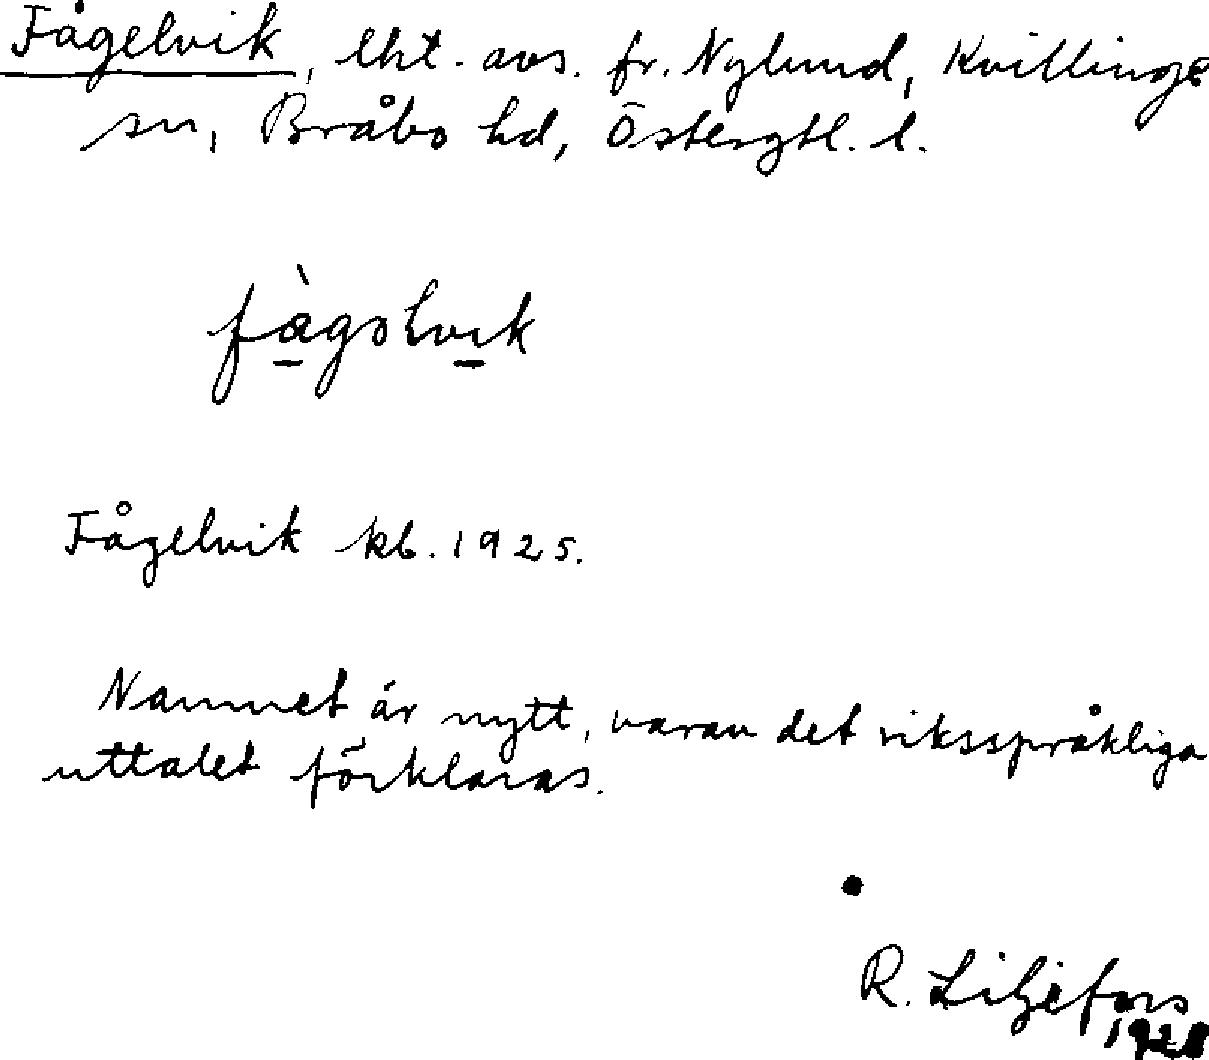 Fågelvik, lht. avs. fr. Nylund, Kvillinge
sn, Bråbo hd, Östergtl. l.
fàgəlvik
Fågelvik kb. 1925.
Namnet är nytt, varav det riksspråkliga
uttalet förklaras.
R. Liljefors